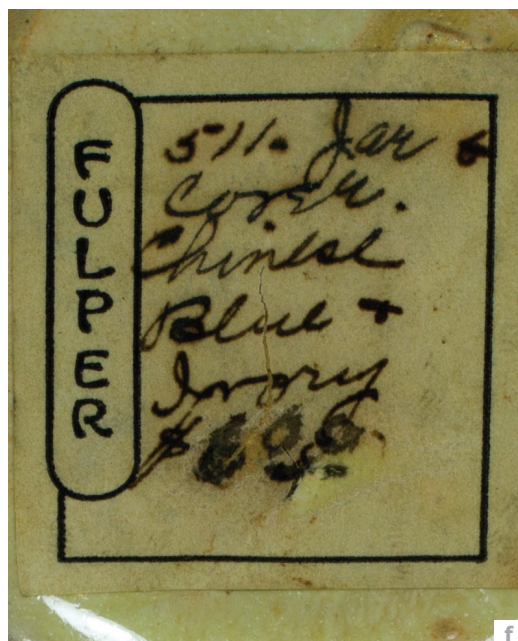 FULPER
511. Jar &
Cover.
Chinese
Blue +
Ivory
$6.00
f